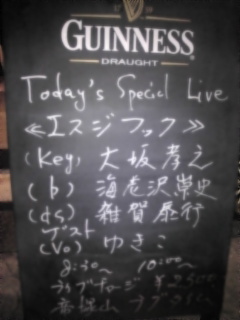 GUINNESS
DRAUGHT
Today's Special Live
≪エスジフック≫
(Key) 大坂孝之
(b) 海老沢崇史
(ds) 雑賀康行
ゲスト
(Vo) ゆきこ
8:30〜 10:00〜
ライブチャージ ¥2,500